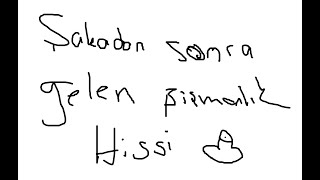 Şakadan sonra
gelen pişmanlık
Hissi